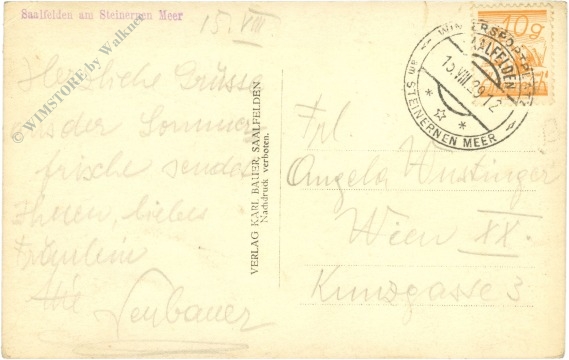 Saalfelden am Steinernen Meer
15. VIII
Herzliche Grüsse
aus der Sommer
frische sendet
Ihnen, liebes
Fräulein
Neubauer
© WIMSTORE by Walkner
VERLAG KARL BAUER, SAALFELDEN
Nachdruck verboten.
WINTERSPORTPLATZ
SAALFELDEN
15.VIII.29.12
am STEINERNEN MEER
10g
Frl.
Angela
Wien XX.
Kunzgasse 3